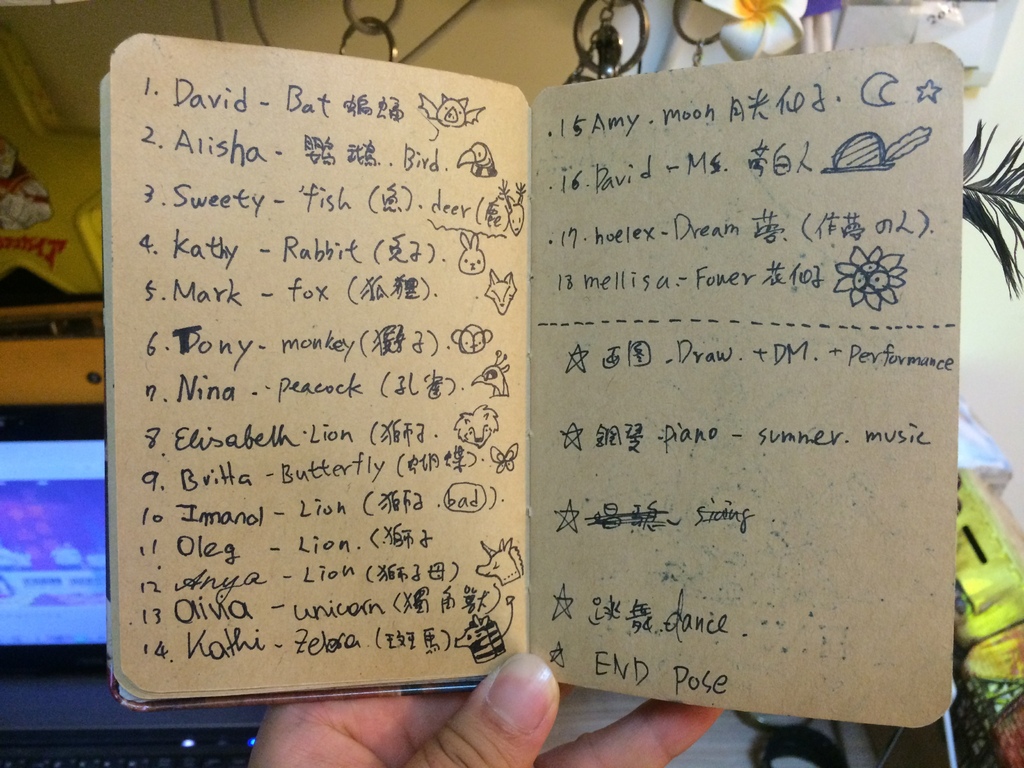 1. David - Bat 蝙蝠
2. Alisha - 鸚鵡. Bird.
3. Sweety - fish (魚). deer (鹿
4. Kathy - Rabbit (兔子).
5. Mark - fox (狐狸).
6. Tony - monkey (猴子).
7. Nina - peacock (孔雀).
8 Elisabelh. Lion (獅子.
9. Britta - Butterfly (蝴蝶).
10 Imanol - Lion (獅子. bad).
11 Oleg - Lion. (獅子
12 Anya - Lion (獅子母)
13 Olivia - unicorn (獨角獸)
14. Kathi - Zebra (斑馬)
.15 Amy. moon 月光仙子.
.16. David - Ms. 蒙白人
.17. hoelex - Dream 夢. (作夢の人).
18 mellisa - Fower 花仙子
☆ 画图 . Draw. + DM. + Performance
☆ 鋼琴 . piano - summer. music
☆ siding
☆ 跳舞. dance.
☆ END Pose